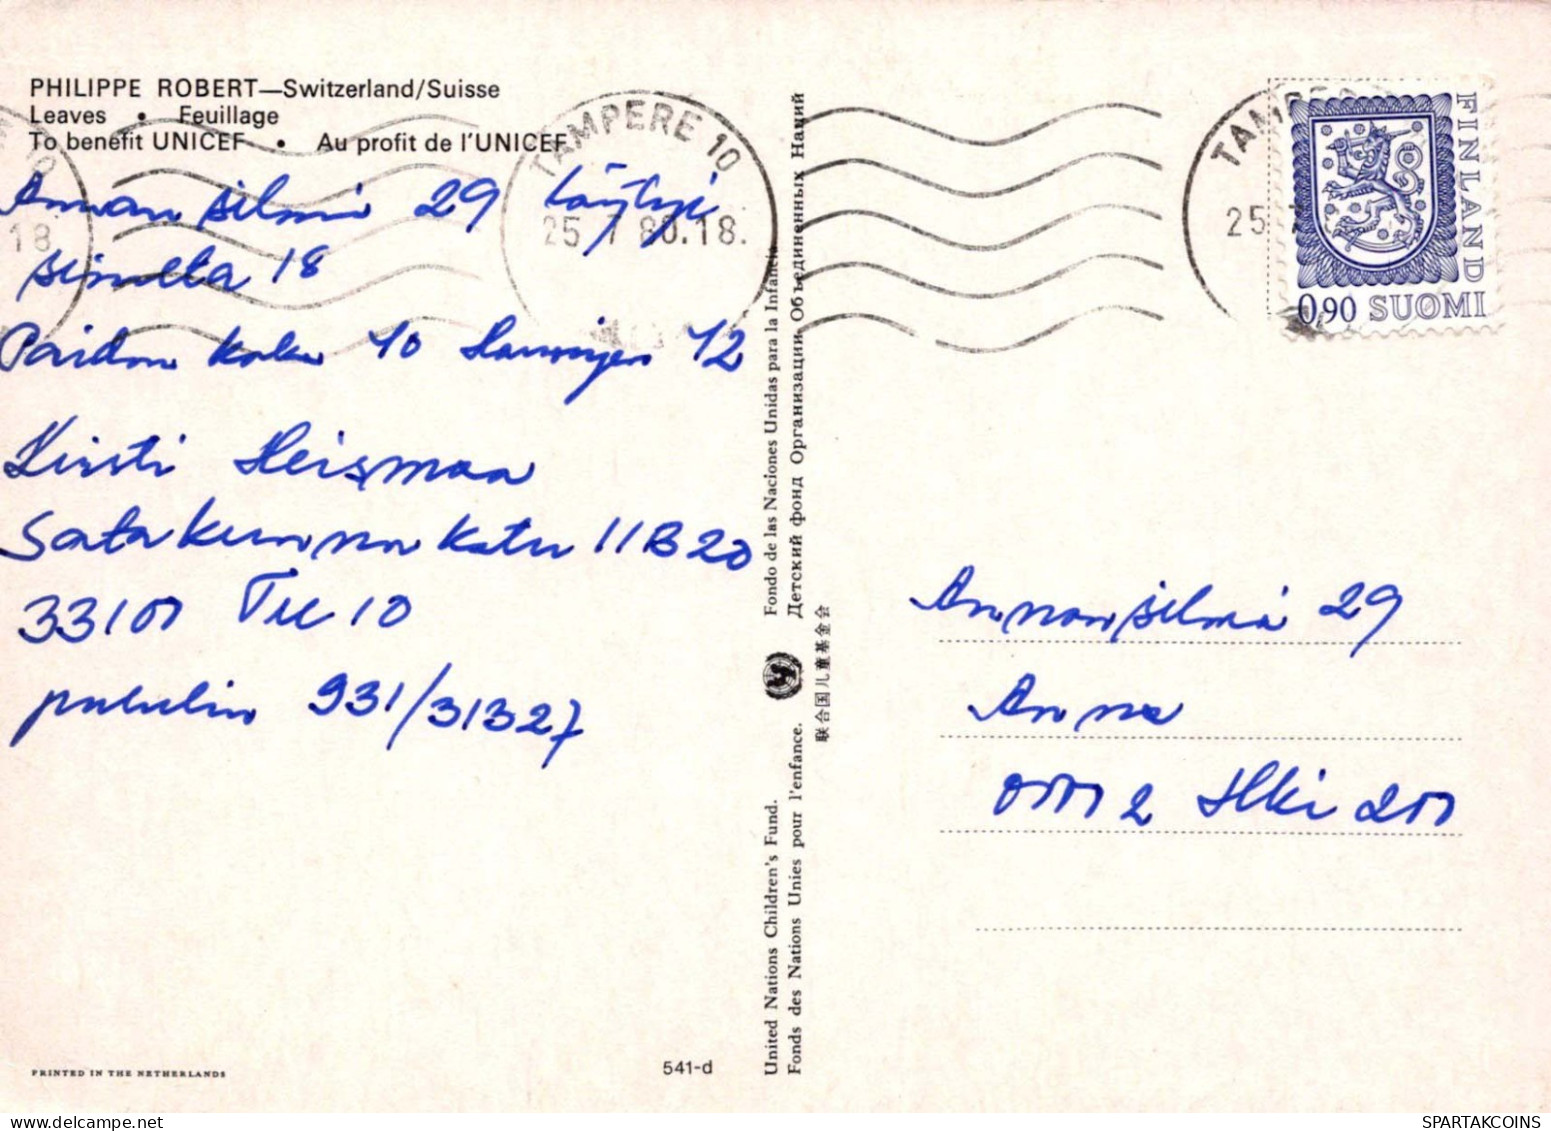 PHILIPPE ROBERT—Switzerland/Suisse
Leaves • Feuillage
To benefit UNICEF • Au profit de l'UNICEF
TAMPERE 10
25. 7 80.18.
18
Annan silmä 29 täytyi
silmälta 18
Paidan koko 40 Hameen 42
Kirsti Heismaa
Satakunnankatu 11B20
33100 Tre 10
puhelin 931/31327
PRINTED IN THE NETHERLANDS
541-d
United Nations Children's Fund.
Fonds des Nations Unies pour l'enfance.
Fondo de las Naciones Unidas para la Infancia
Детский фонд Организации Объединенных Наций
联合国儿童基金会
25
FINLAND
0,90 SUOMI
Annansilmä 29
Anna
00002 Hki 200
SPARTAKCOINS